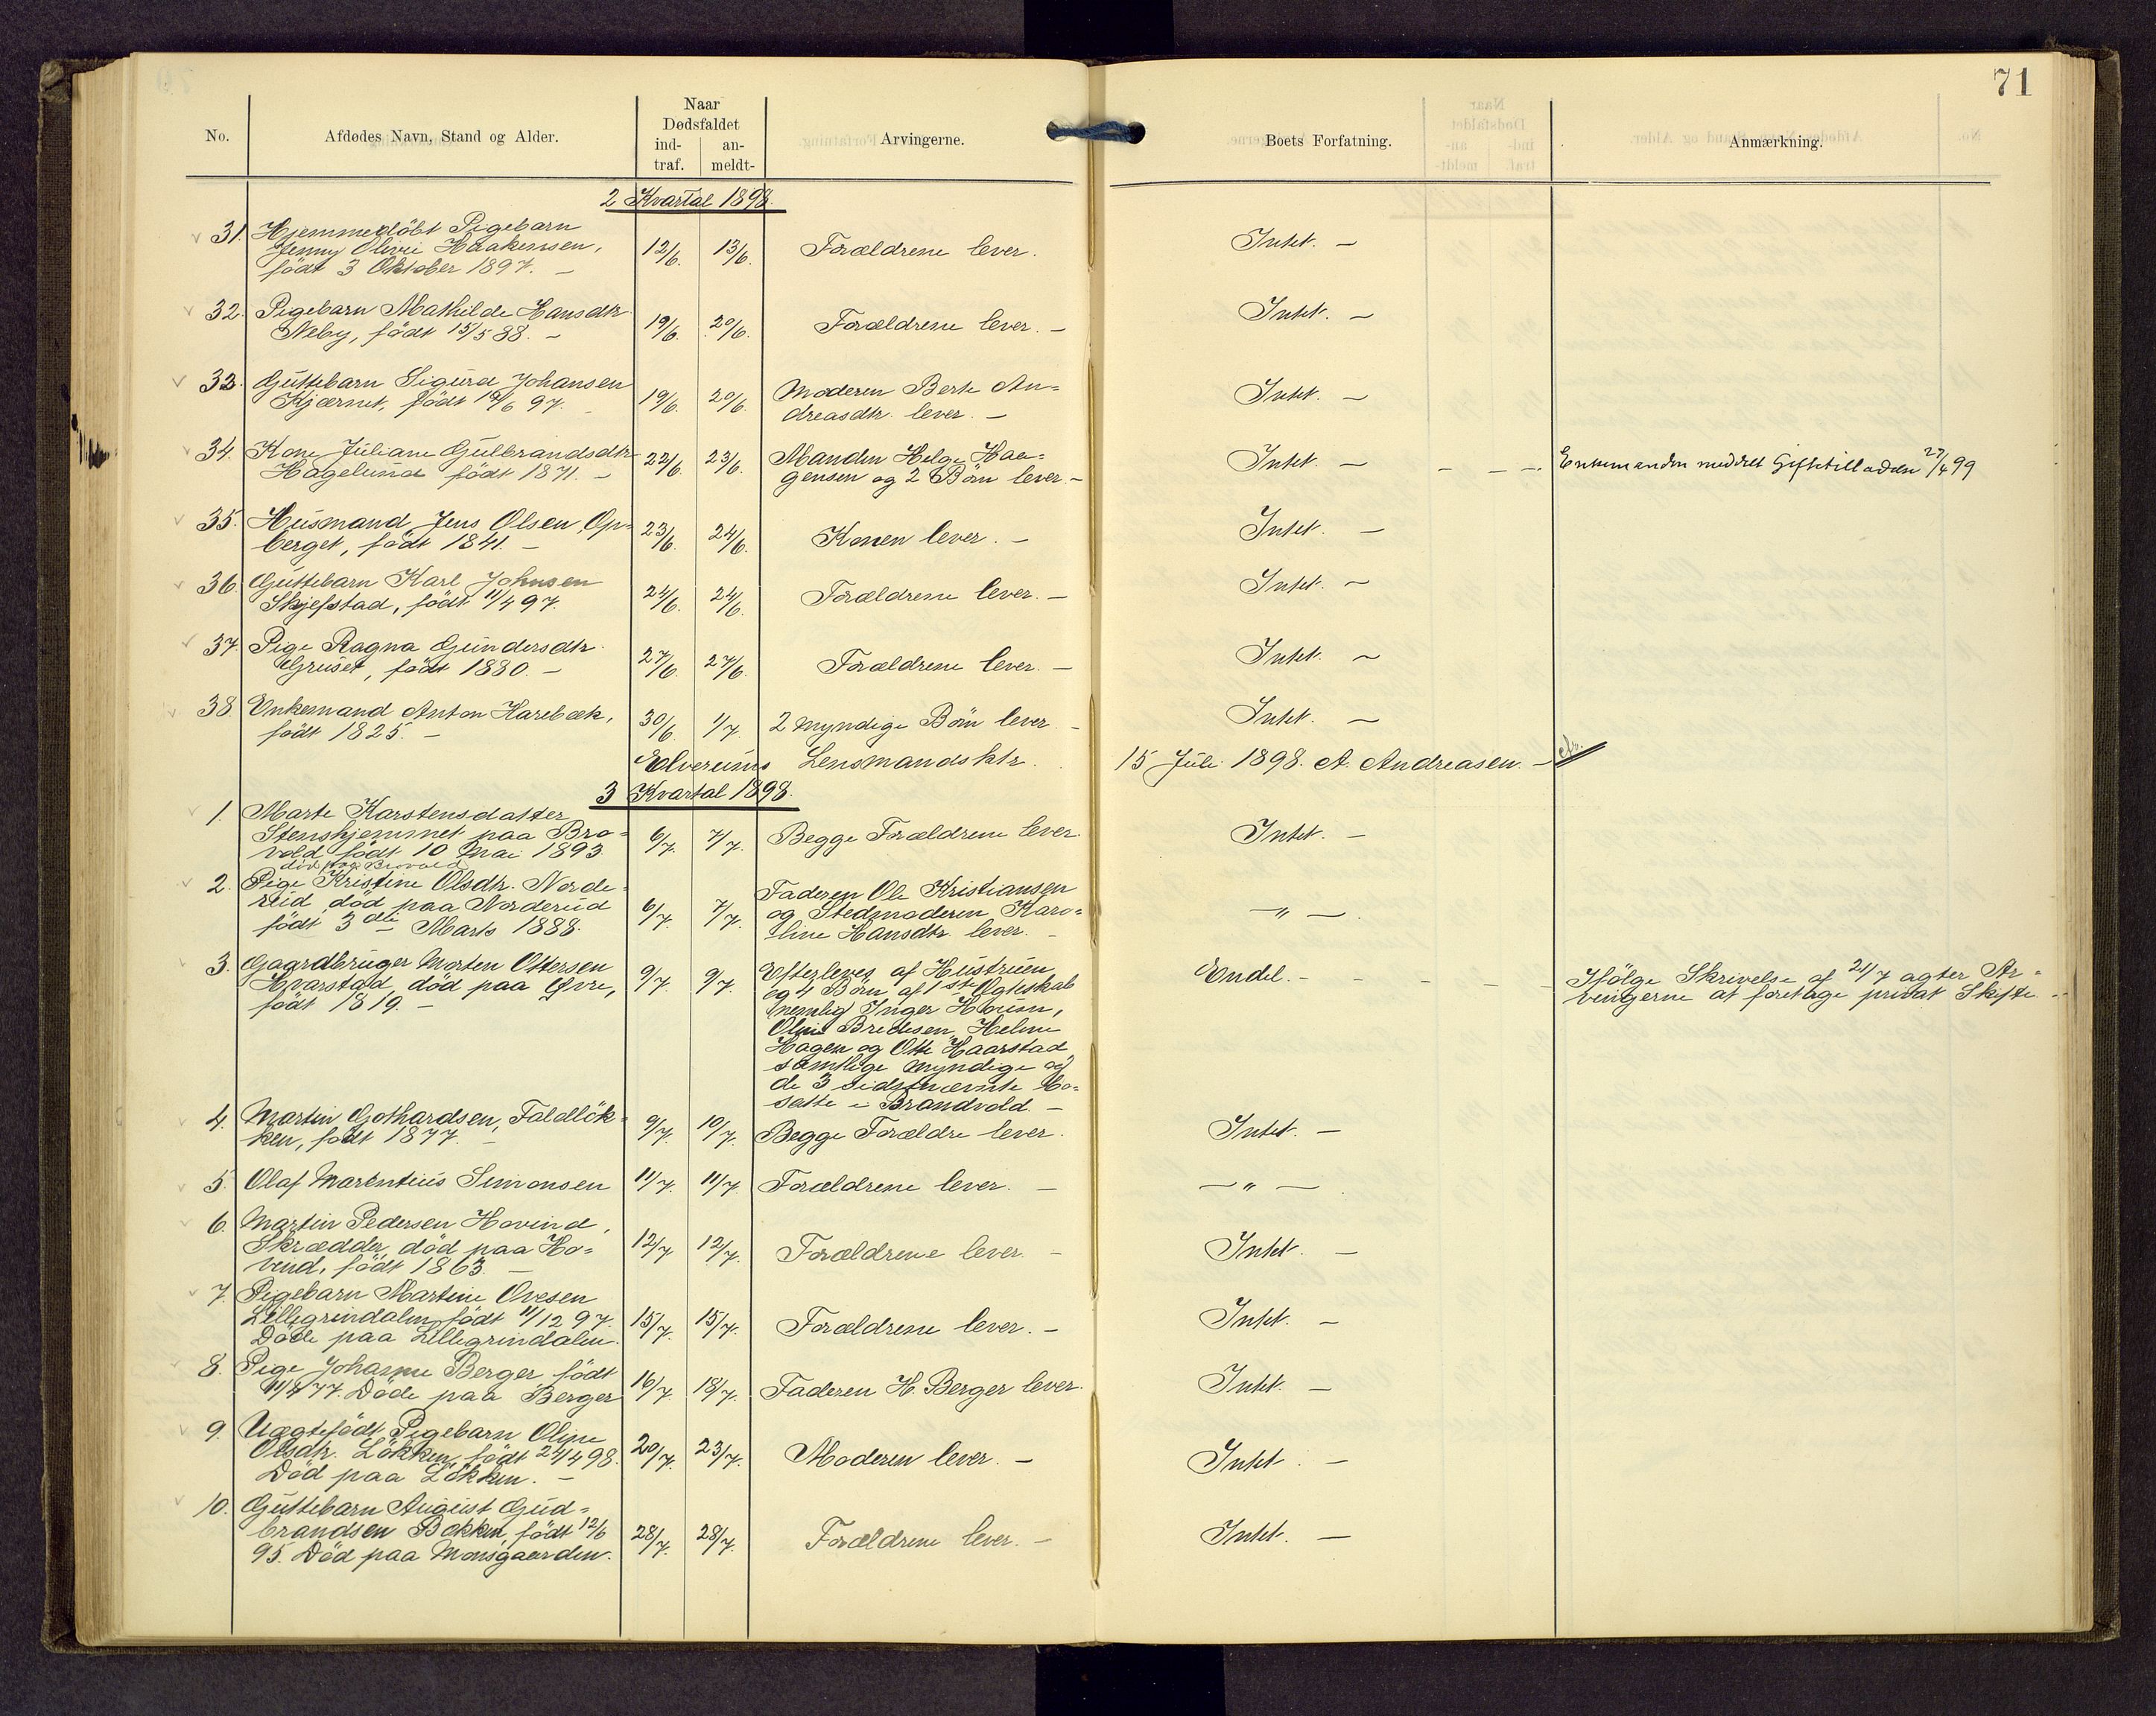 71
No.
Afdødes Navn, Stand og Alder.
Naar
Dødsfaldet
ind-
traf.
an-
meldt-
Arvingerne.
Boets Forfatning.
Anmærkning.
2 Kvartal 1898.
31. Hjemmedöbt Pigebarn
Jenny Olevie Haakensen,
födt 3 Oktober 1897. –
12/6. 13/6. Forældrene lever. Intet. –
32. Pigebarn Mathilde Hansdtr
Neby, födt 15/5 88. –
19/6. 20/6. Forældrene lever. – Intet. –
33. Guttebarn Sigurd Johansen
Kjærnet, födt 18/6 97.
19/6. 20/6. Moderen Berte An=
dreasdtr. lever. – Intet. –
34. Kone Juliane Gulbrandsdtr
Hagelund födt 1871. –
22/6. 23/6. Manden Helge Haa=
gensen og 2 Börn lever. – Intet. – – – – Enkemanden meddelt Giftetilladelse 27/4 99
35. Husmand Jens Olsen Op=
berget, födt 1841. –
23/6. 24/6. Konen lever. – Intet. –
36. Guttebarn Karl Johnsen
Skjefstad, födt 11/4 97.
24/6. 24/6. Forældrene lever. – Intet. –
37. Pige Ragna Gundersdtr.
Gruset, födt 1880. –
27/6. 27/6. Forældrene lever. – Intet. –
38. Enkemand Anton Harebæk,
födt 1825. –
30/6. 1/7. 2 myndige Börn lever. – Intet. –
Elverums Lensmandsktr. 15 Juli 1898. A. Andreasen. –
3 Kvartal 1898.
1. Marte Karstensdatter
Stenshjemmet paa Bro=
vold födt 10 Mai 1893
död paa Brovold
6/7. 7/7. Begge Forældrene lever. Intet. –
2. Pige Kristine Olsdtr. Norde=
rud, död paa Norderud
födt 3die Marts 1888.
6/7. 7/7. Faderen Ole Kristiansen
og Stedmoderen Karo=
line Hansdtr. lever. – – " –
3. Gaardbruger Morten Ottersen
Hvarstad, död paa Övre,
födt 1819. –
9/7. 9/7. Efterleves af Hustruen
og 4 Börn af 1ste Ægteskab
nemlig Inger Houm,
Oline Bredesen, Helene
Hagen og Otte Haarstad
samtlige myndige og
de 3 sidstnævnte bo=
satte i Brandvold. –
Endel. – – – – – Ifölge Skrivelse af 21/7 agter Ar=
vingerne at foretage privat Skifte. –
4. Martin Gothardsen, Faldlök=
ken, födt 1877. –
9/7. 10/7. Begge Forældre lever. Intet. –
5. Olaf Marentius Simonsen 11/7. 11/7. Forældrene lever. – – " –
6. Martin Pedersen Hovind,
Skrædder, död paa Ho=
vind. födt 1863. –
12/7. 12/7. Forældrene lever. – Intet. –
7. Pigebarn Martine Ovesen
Lillegrindalen, födt 11/12 97.
Döde paa Lillegrindalen.
15/7. 15/7. Forældrene lever. – Intet. –
8. Pige Johanne Berger, födt
11/4 77. Döde paa Berger
16/7. 18/7. Faderen H. Berger lever. Intet. –
9. Uægtefödt Pigebarn Oline
Olsdtr. Lökken, födt 24/4 98.
Död paa Lökken. –
20/7. 23/7. Moderen lever. – Intet. –
10. Guttebarn August Gud=
brandsen Bakken, födt 12/6
95. Död paa Monsgaarden.
28/7. 28/7. Forældrene lever. – Intet. –